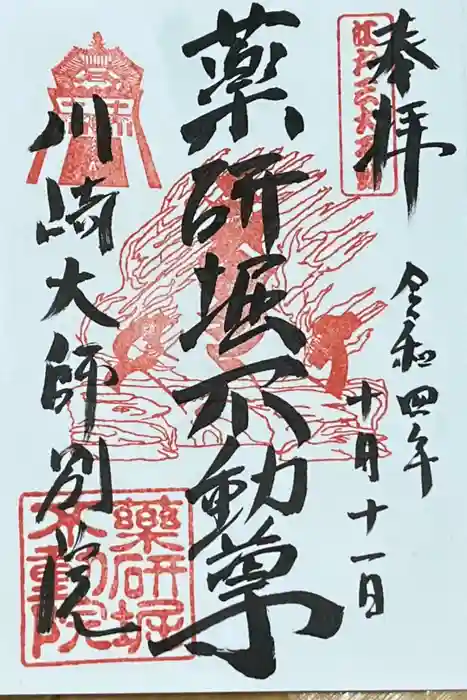 奉拝
令和四年
十月十一日
薬研堀不動尊
川崎大師別院
薬研堀
不動院